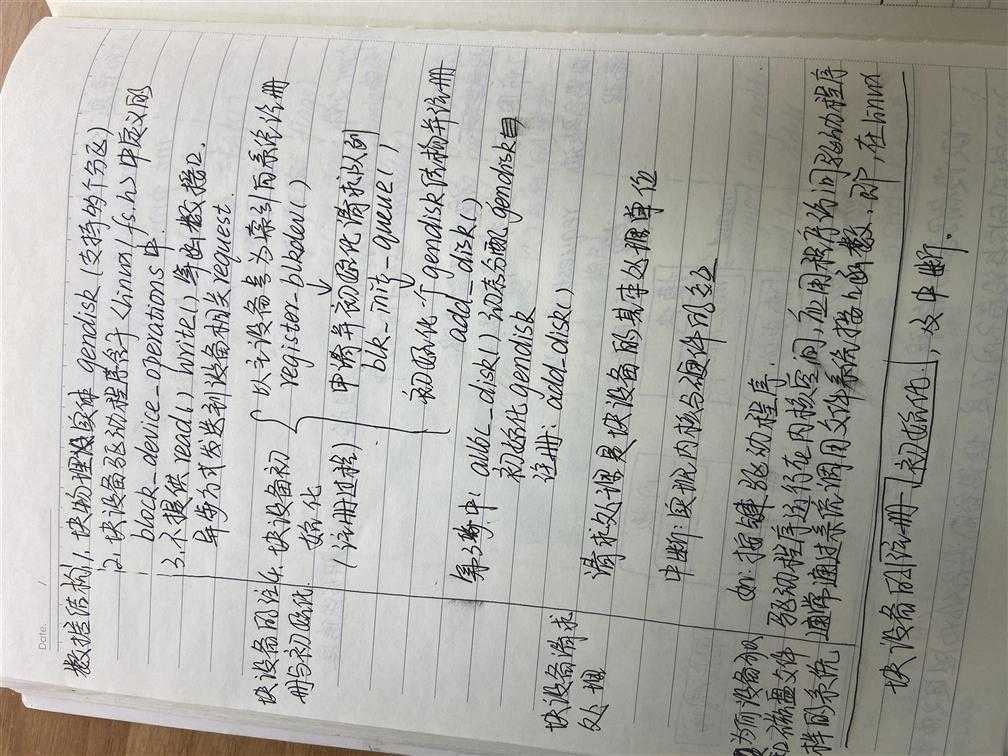 Date.
数据结构 1. 块物理实体 gendisk (支持多个分区)
2. 块设备驱动程序等于<linux/fs.h>中定义的
block_device_operations中.
3. 不提供read() write()等函数接口.
异步方式发送到设备相关request
块设备的注册与初始化 4. 块设备初始化
(注册过程)
以主设备号为索引向系统注册
register_blkdev()
↓
申请并初始化请求队列
blk_init_queue()
↓
初始化一个gendisk结构并注册
add_disk()
(第3步中: alloc_disk() 动态分配gendisk
初始化gendisk
注册: add_disk()
块设备请求处理
请求处理是块设备的基本处理单位
中断: 实现内核与硬件同步
如: 按键驱动程序.
驱动程序运行在内核空间, 应用程序访问驱动程序
通常通过系统调用文件系统接口函数. 即, 在linux
为何设备和
磁盘文件
样的系统
块设备的注册、初始化, 及中断.